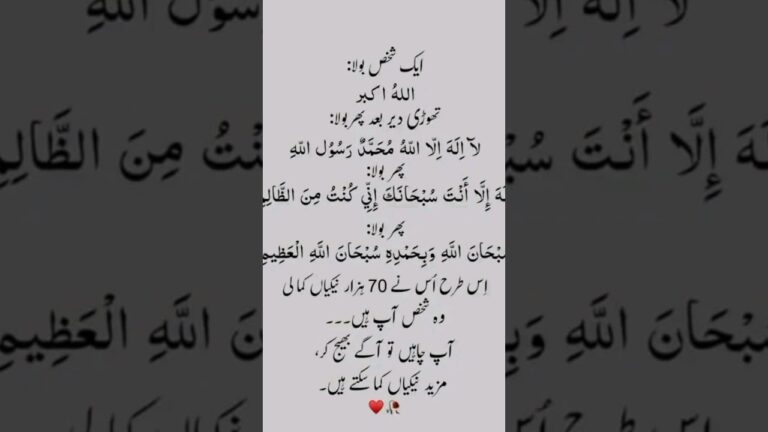 ایک شخص بولا:
اللہُ اکبر
تھوڑی دیر بعد پھر بولا:
لآ اِلٰهَ اِلّا اللهُ مُحَمَّدٌ رَسُوْلُ اللهِ
پھر بولا:
إِلَّا أَنْتَ سُبْحَانَكَ إِنِّي كُنْتُ مِنَ
پھر بولا:
اللَّهِ وَبِحَمْدِهِ سُبْحَانَ اللَّهِ الْعَظِيمِ
اِس طرح اُس نے 70 ہزار نیکیاں کما لی
وہ شخص آپ ہیں۔۔۔
آپ چاہیں تو آگے بھیج کر،
مزید نیکیاں کما سکتے ہیں۔